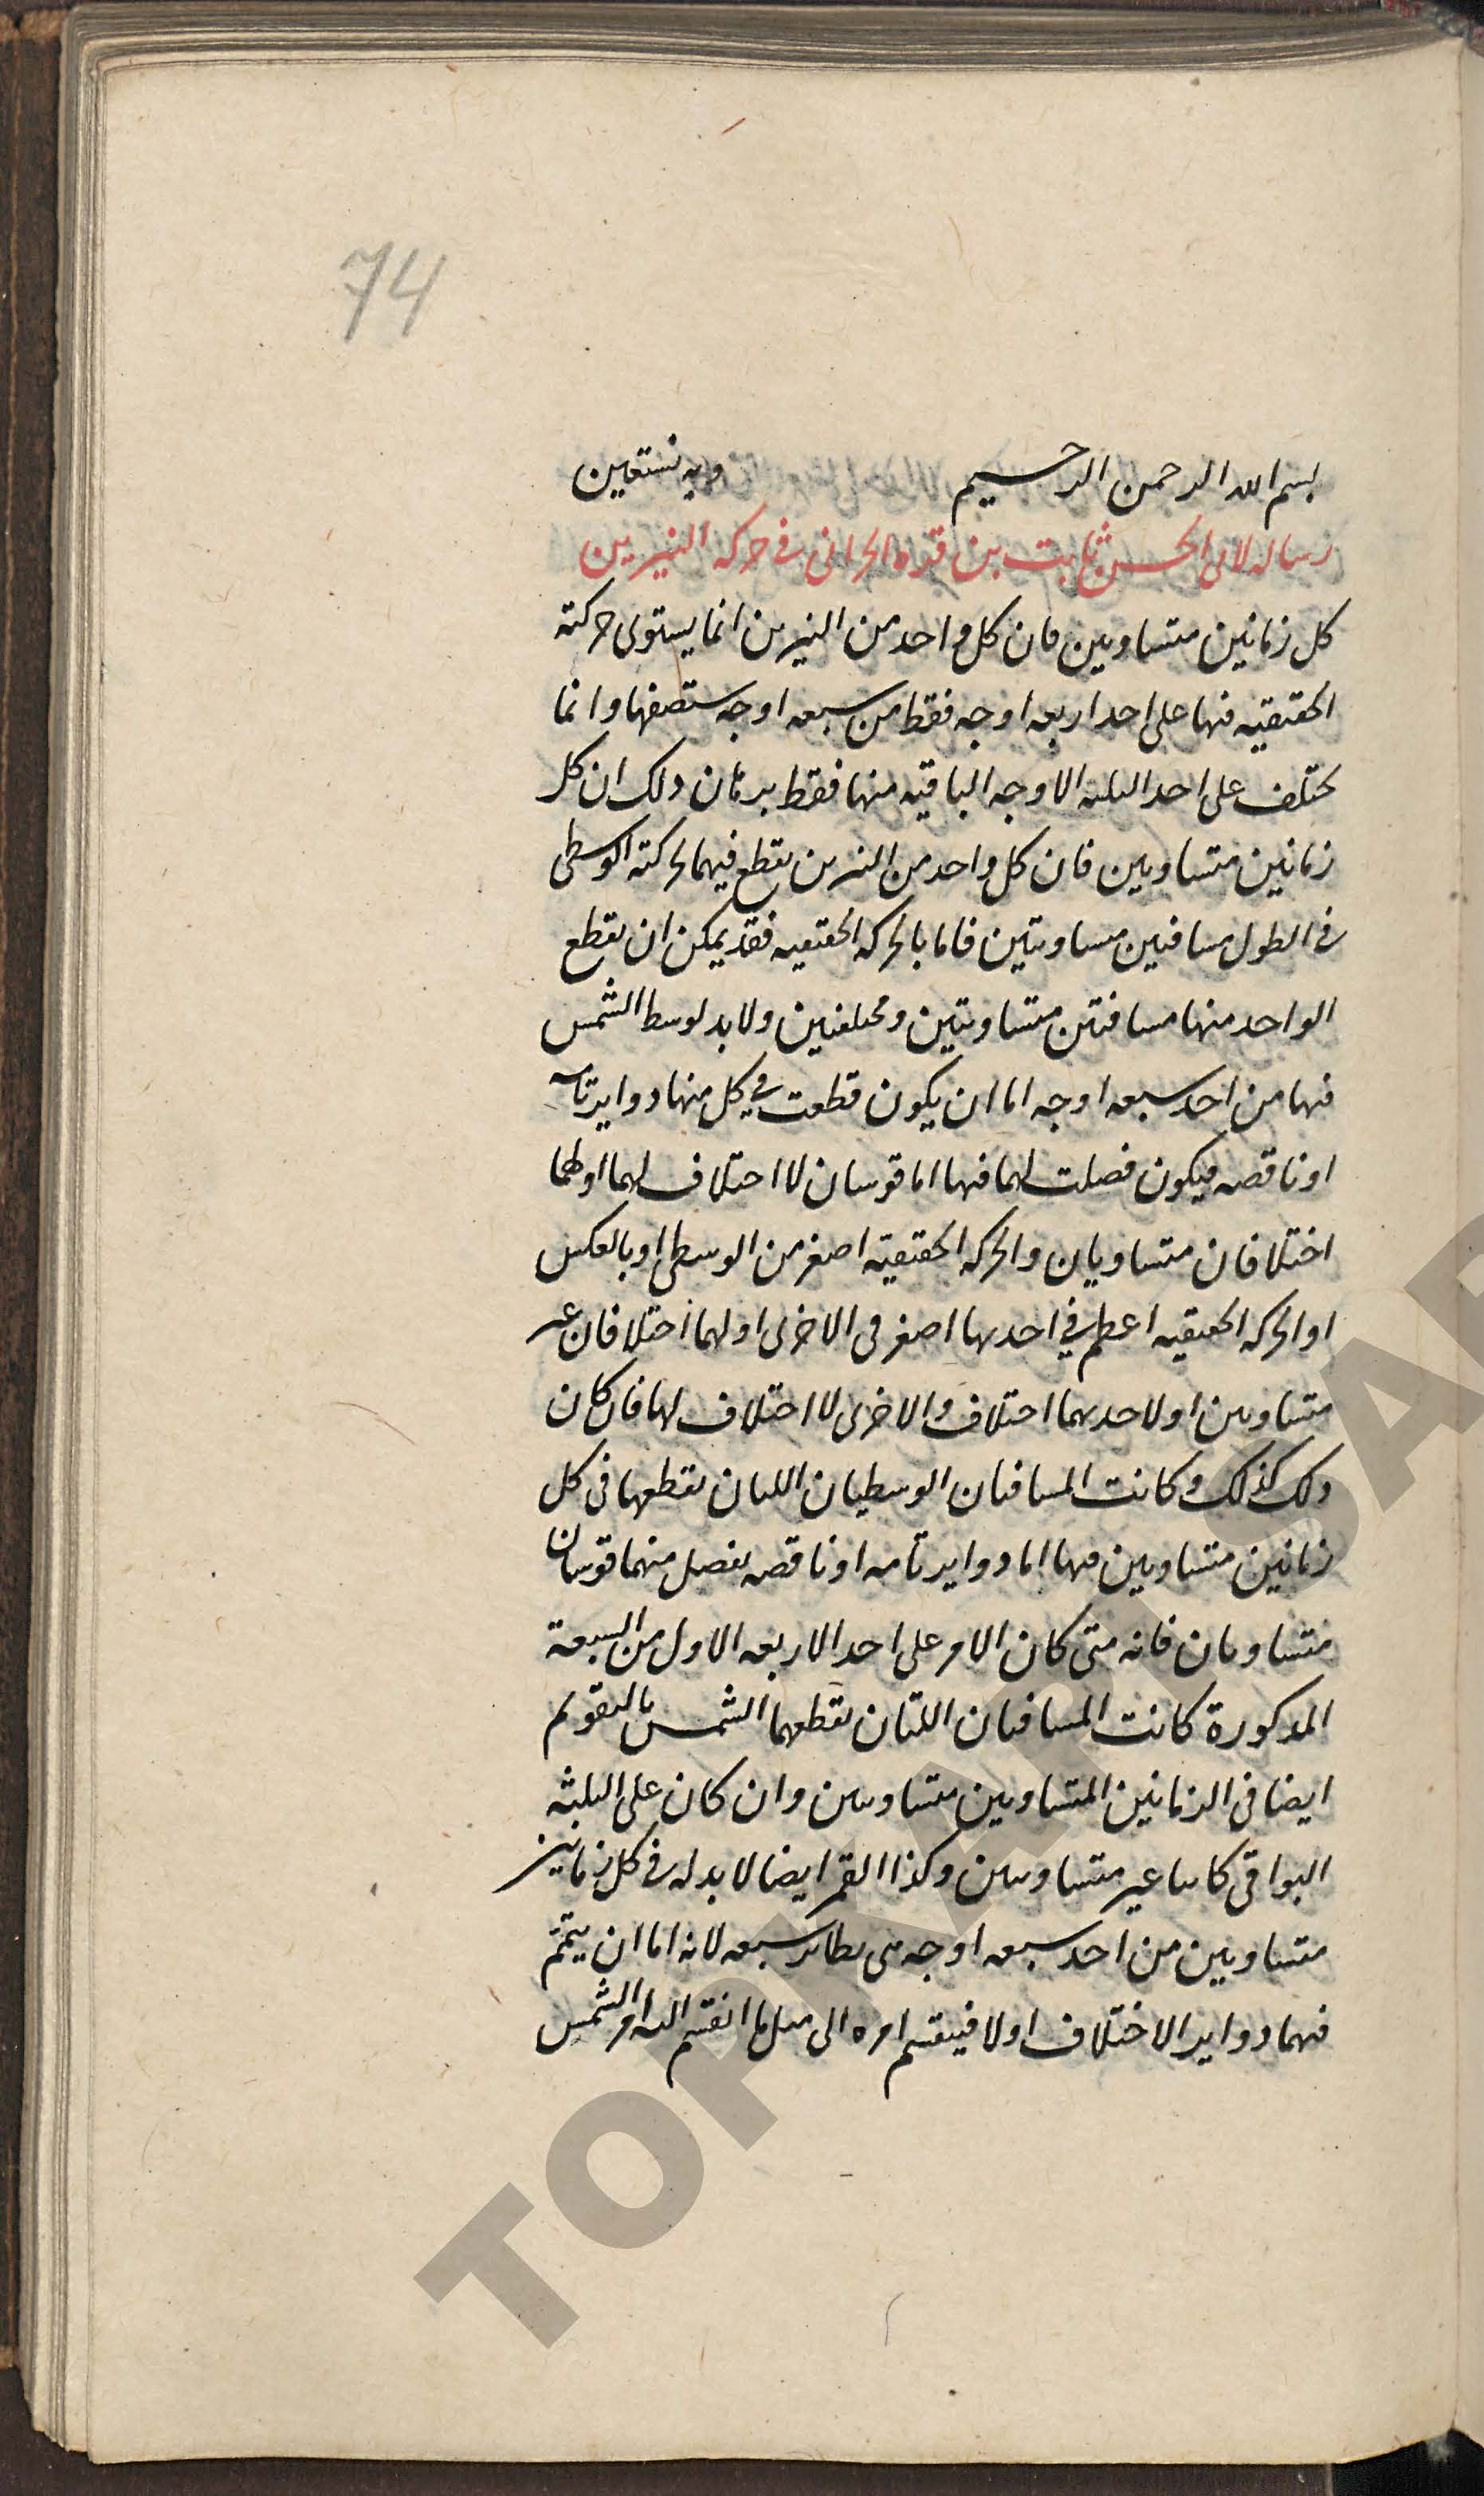 74
بسم الله الرحمن الرحيم وبه نستعين
رساله لابى الحسن ثابت بن قره الحرانى فى حركه النيرين
كل زمانين متساويين فان كل واحد من النيرين انما يستوى حركته
الحقيقيه فيها على احد اربعه اوجه فقط من سبعه اوجه ستصفها وانما
يختلف على احد الثلثه الاوجه الباقيه منها فقط برهان ذلك ان كل
زمانين متساويين فان كل واحد من النيرين يقطع فيهما بحركته الوسطى
فى الطول مسافتين متساويتين فاما بالحركه الحقيقيه فقد يمكن ان يقطع
الواحد منها مسافتين متساويتين ومختلفتين ولا بد لوسط الشمس
فيها من احد سبعه اوجه اما ان يكون قطعت فى كل منها دواير تامه
او ناقصه فيكون فضلت لهما فيها اما قوسان لا اختلاف لهما او لهما
اختلافان متساويان والحركه الحقيقيه اصغر من الوسطى او بالعكس
او الحركه الحقيقيه اعظم فى احديها اصغر فى الاخرى او لهما اختلافان غير
متساويين او لاحديهما اختلاف والاخرى لا اختلاف لها فان كان
ذلك كذلك وكانت المسافتان الوسطيان اللتان يقطعها فى كل
زمانين متساويين فيها اما دواير تامه او ناقصه يفضل منهما قوسان
متساويان فانه متى كان الامر على احد الاربعه الاول من السبعة
المذكورة كانت المسافتان اللتان يقطعهما الشمس بالتقويم
ايضا فى الزمانين المتساويين متساويتين وان كان على الثلثه
البواقى كانتا غير متساويتين وكذا القمر ايضا لا بد له فى كل زمانين
متساويين من احد سبعه اوجه هى نظائر سبعه لانه اما ان يتمم
فيهما دواير الاختلاف اولا فينقسم امره الى مثل ما انقسم اليه امر الشمس
TOPKAPI SAR